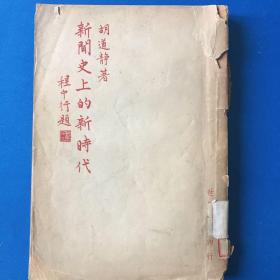 胡道静著
新聞史上的新時代
程中行題